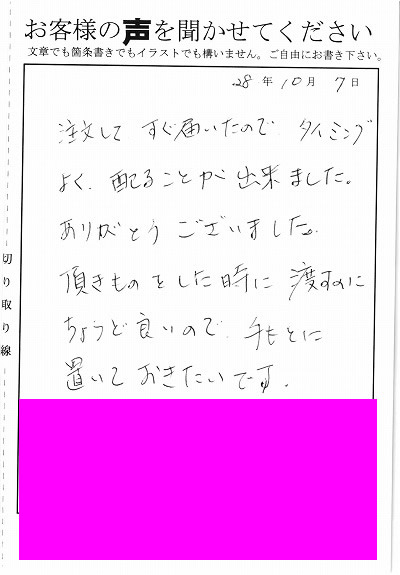 お客様の声を聞かせてください
文章でも箇条書きでもイラストでも構いません。ご自由にお書き下さい。
28年10月7日
注文して すぐ届いたので、タイミング
よく、配ることが出来ました。
ありがとうございました。
頂きものをした時に 渡すのに
ちょうど良いので、手もとに
置いておきたいです。
切り取り線